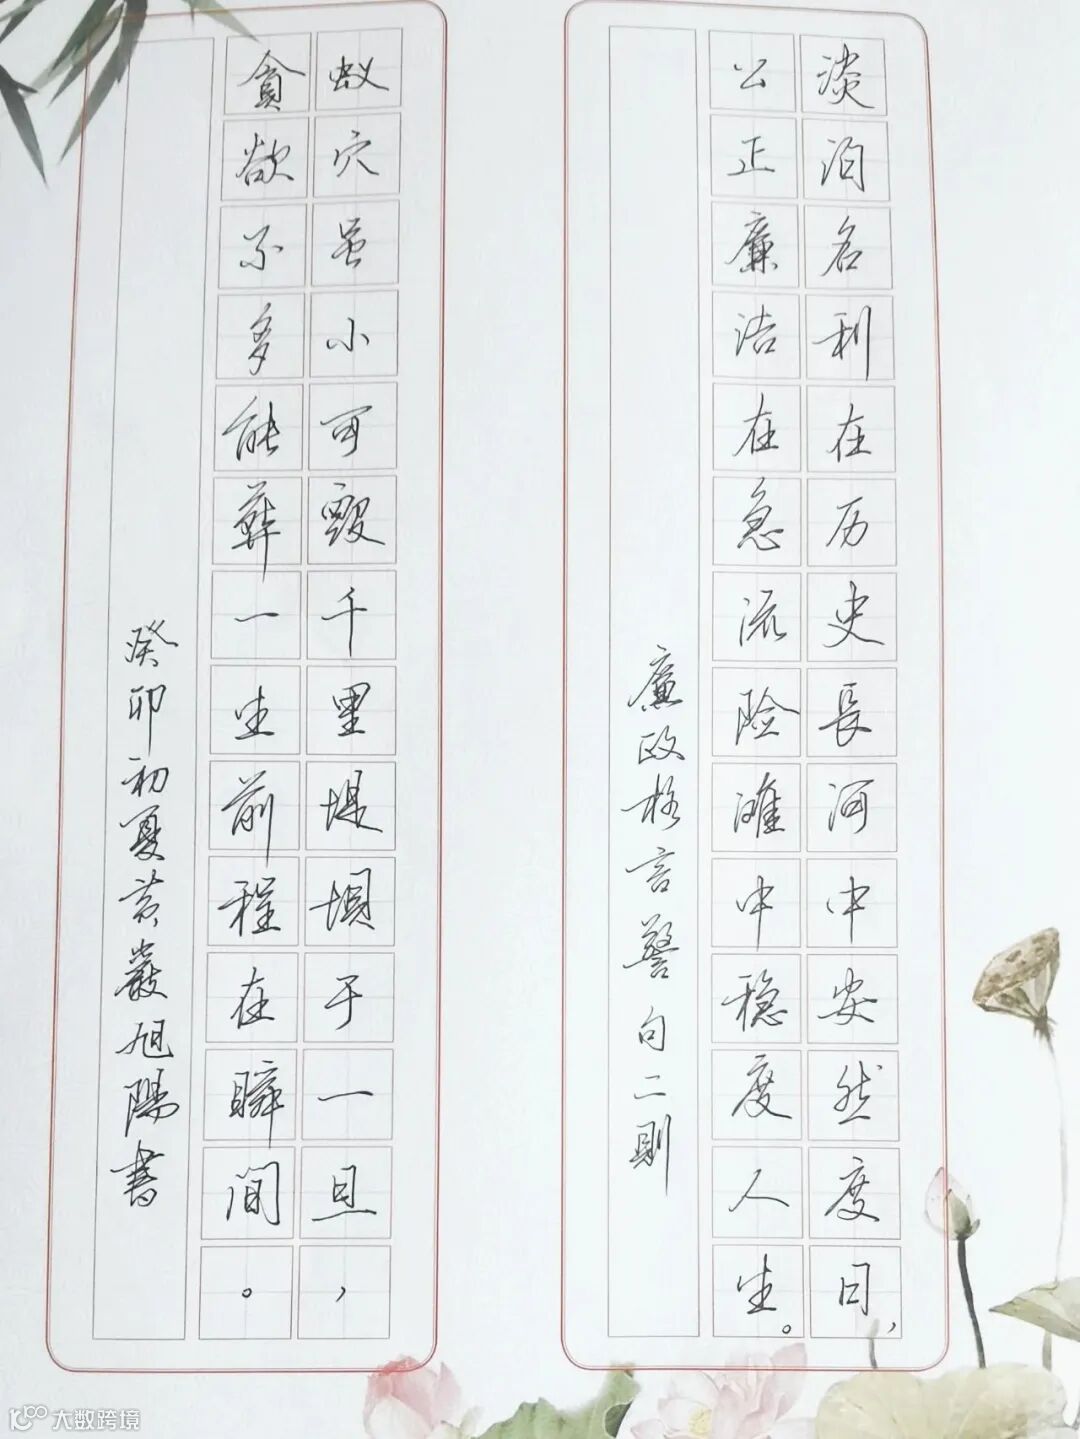 淡泊名利在历史長河中安然度日，
公正廉洁在急流险滩中稳度人生。
廉政格言警句二則
蚁穴虽小可毁千里堤坝于一旦，
貪欲不多能葬一生前程在瞬间。
癸卯初夏黄巖旭陽書
大数跨境